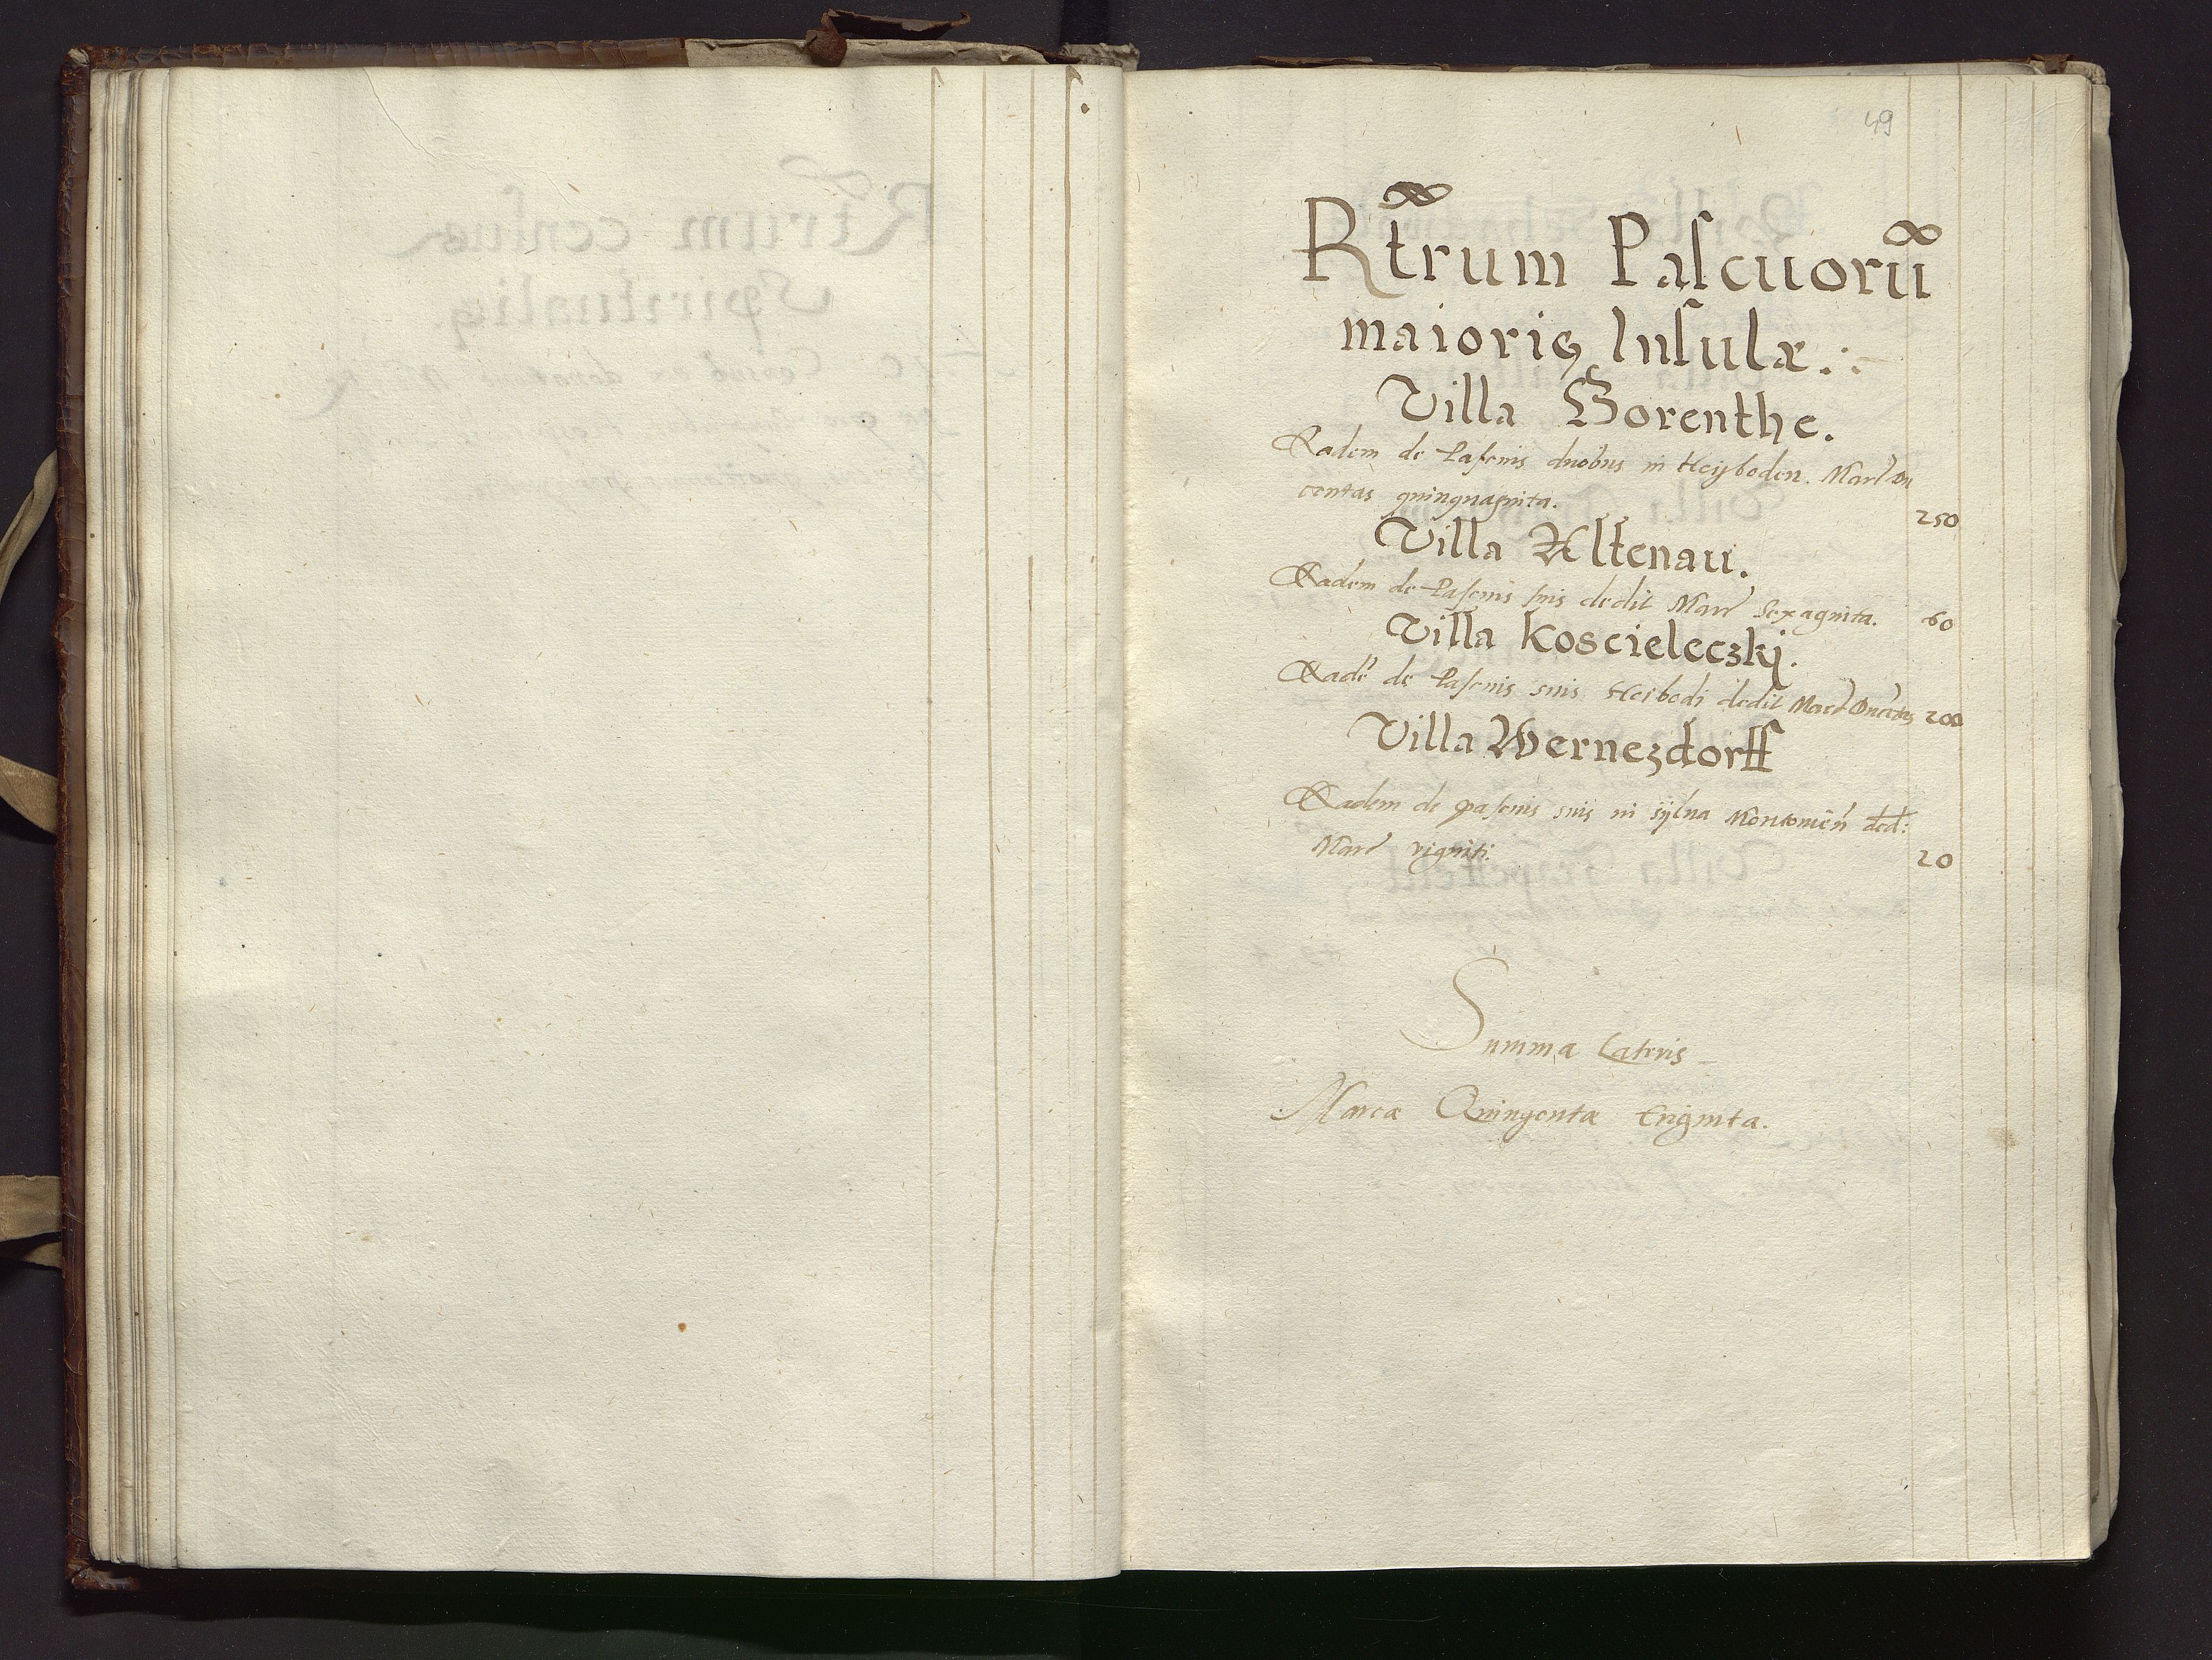 49
Rt̃rum Pascuorũ
maioris Insulæ.
Villa Gorenthe.
Eadem de Pascuis duobus in Heyboden. Marc Du
centas quinquaginta. 250
Villa Altenau.
Eadem de Pascuis suis dedit Marc Sexaginta. 60
Villa Koscieleczkj.
Eadẽ de Pascuis suis Heibodi dedit Marc Ducẽtas 200
Villa Wernezdorff
Eadem de pascuis suis in sylva ded:
Marc viginti. 20
Summa Lateris
Marcæ Quingentæ triginta.